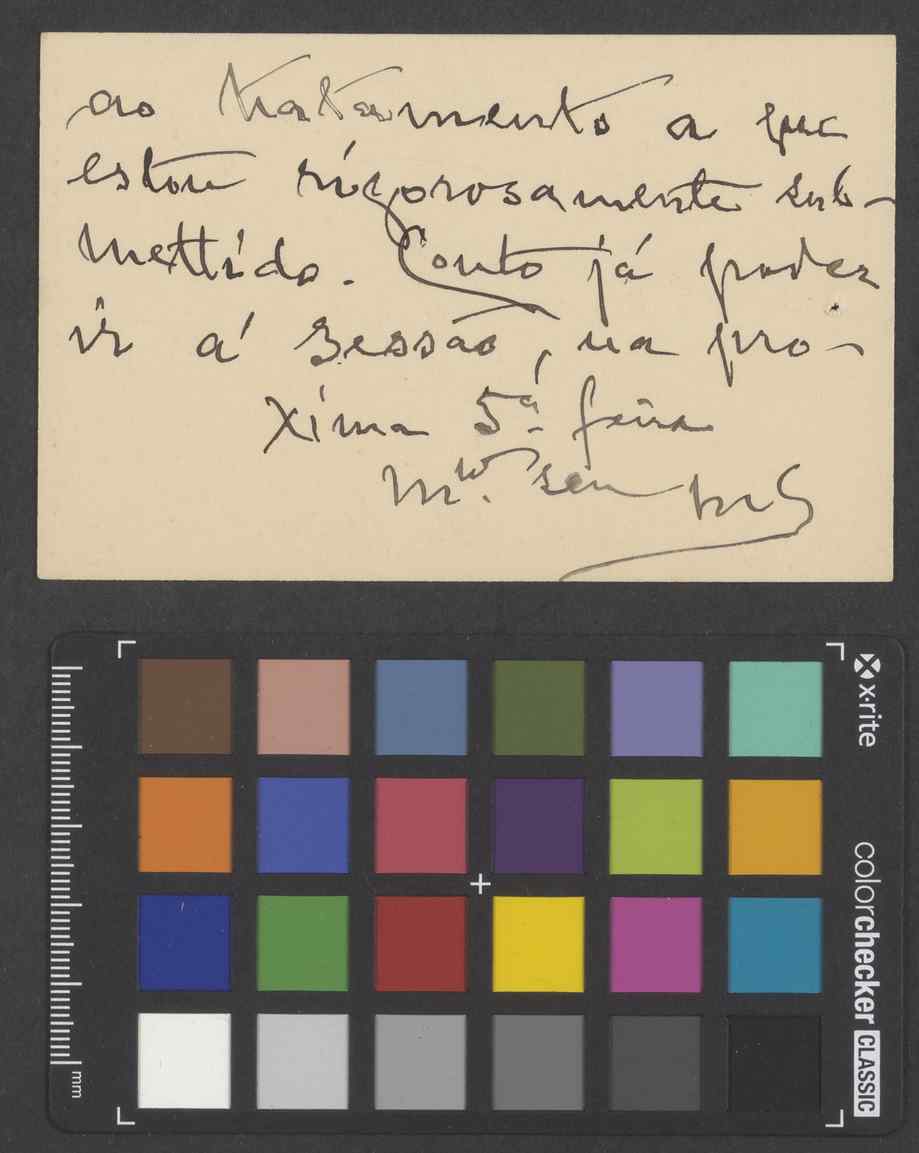 ao tratamento a que
estou rigorosamente sub-
mettido. Conto já poder
ir a' sessão, na pro-
xima 5ª. feira
Mto. seu
x·rite
colorchecker CLASSIC
mm